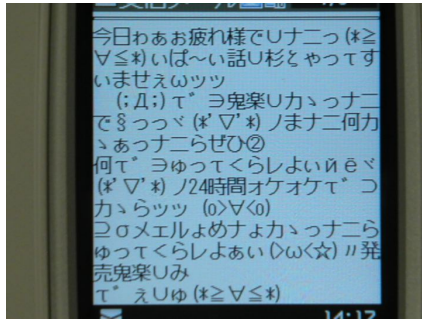 今日ゎぁお疲れ様で∪ナ二っ (*≧
∀≦*) ぃぱ〜ぃ話∪杉ξゃってす
ぃませぇωッッ
(;Д;) τ゛ヨ鬼楽∪カゝっナ二
で§っっヾ(*'▽'*)ノまナ二何カ
ゝぁっナ二らぜひ②
何τ゛ヨゅってくらレよぃйёヾ
(*'▽'*)ノ24時間ォケォケτ゛⊃
カゝらッッ (o>∀<o)
⊇σメェルょめナょカゝっナ二ら
ゅってくらレよぁぃ (>ω<☆)〃発
売鬼楽∪み
τ゛ぇ∪ゅ (*≧∀≦*)
14:12